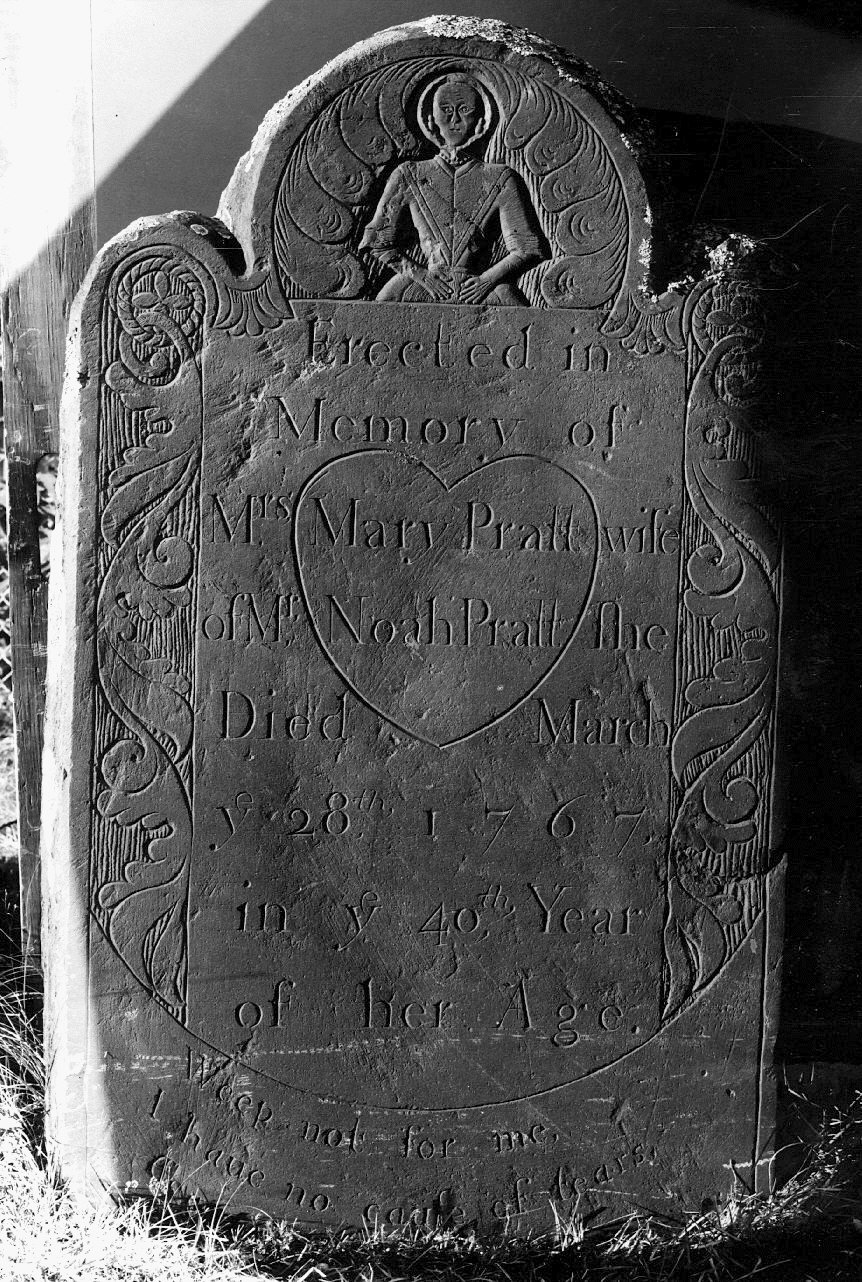 Erected in
Memory of
Mrs Mary Pratt wife
of Mr Noah Pratt ſhe
Died March
ye 28th, 1767,
in ye 40th, Year
of her Age.
Weep not for me,
I haue no cauſe of tears.